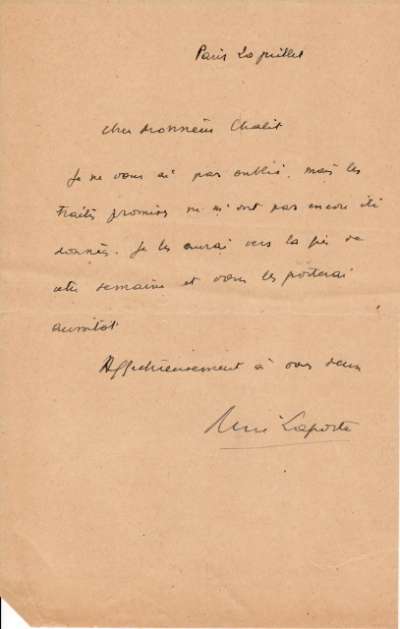 Paris 20 juillet
Cher Monsieur Chalit
Je ne vous ai pas oublié, mais les
traités promises ne m'ont pas encore été
donnés. Je les aurai vers la fin de
cette semaine et vous les porterai
aussitôt
Affectueusement à vous deux
René Laporte